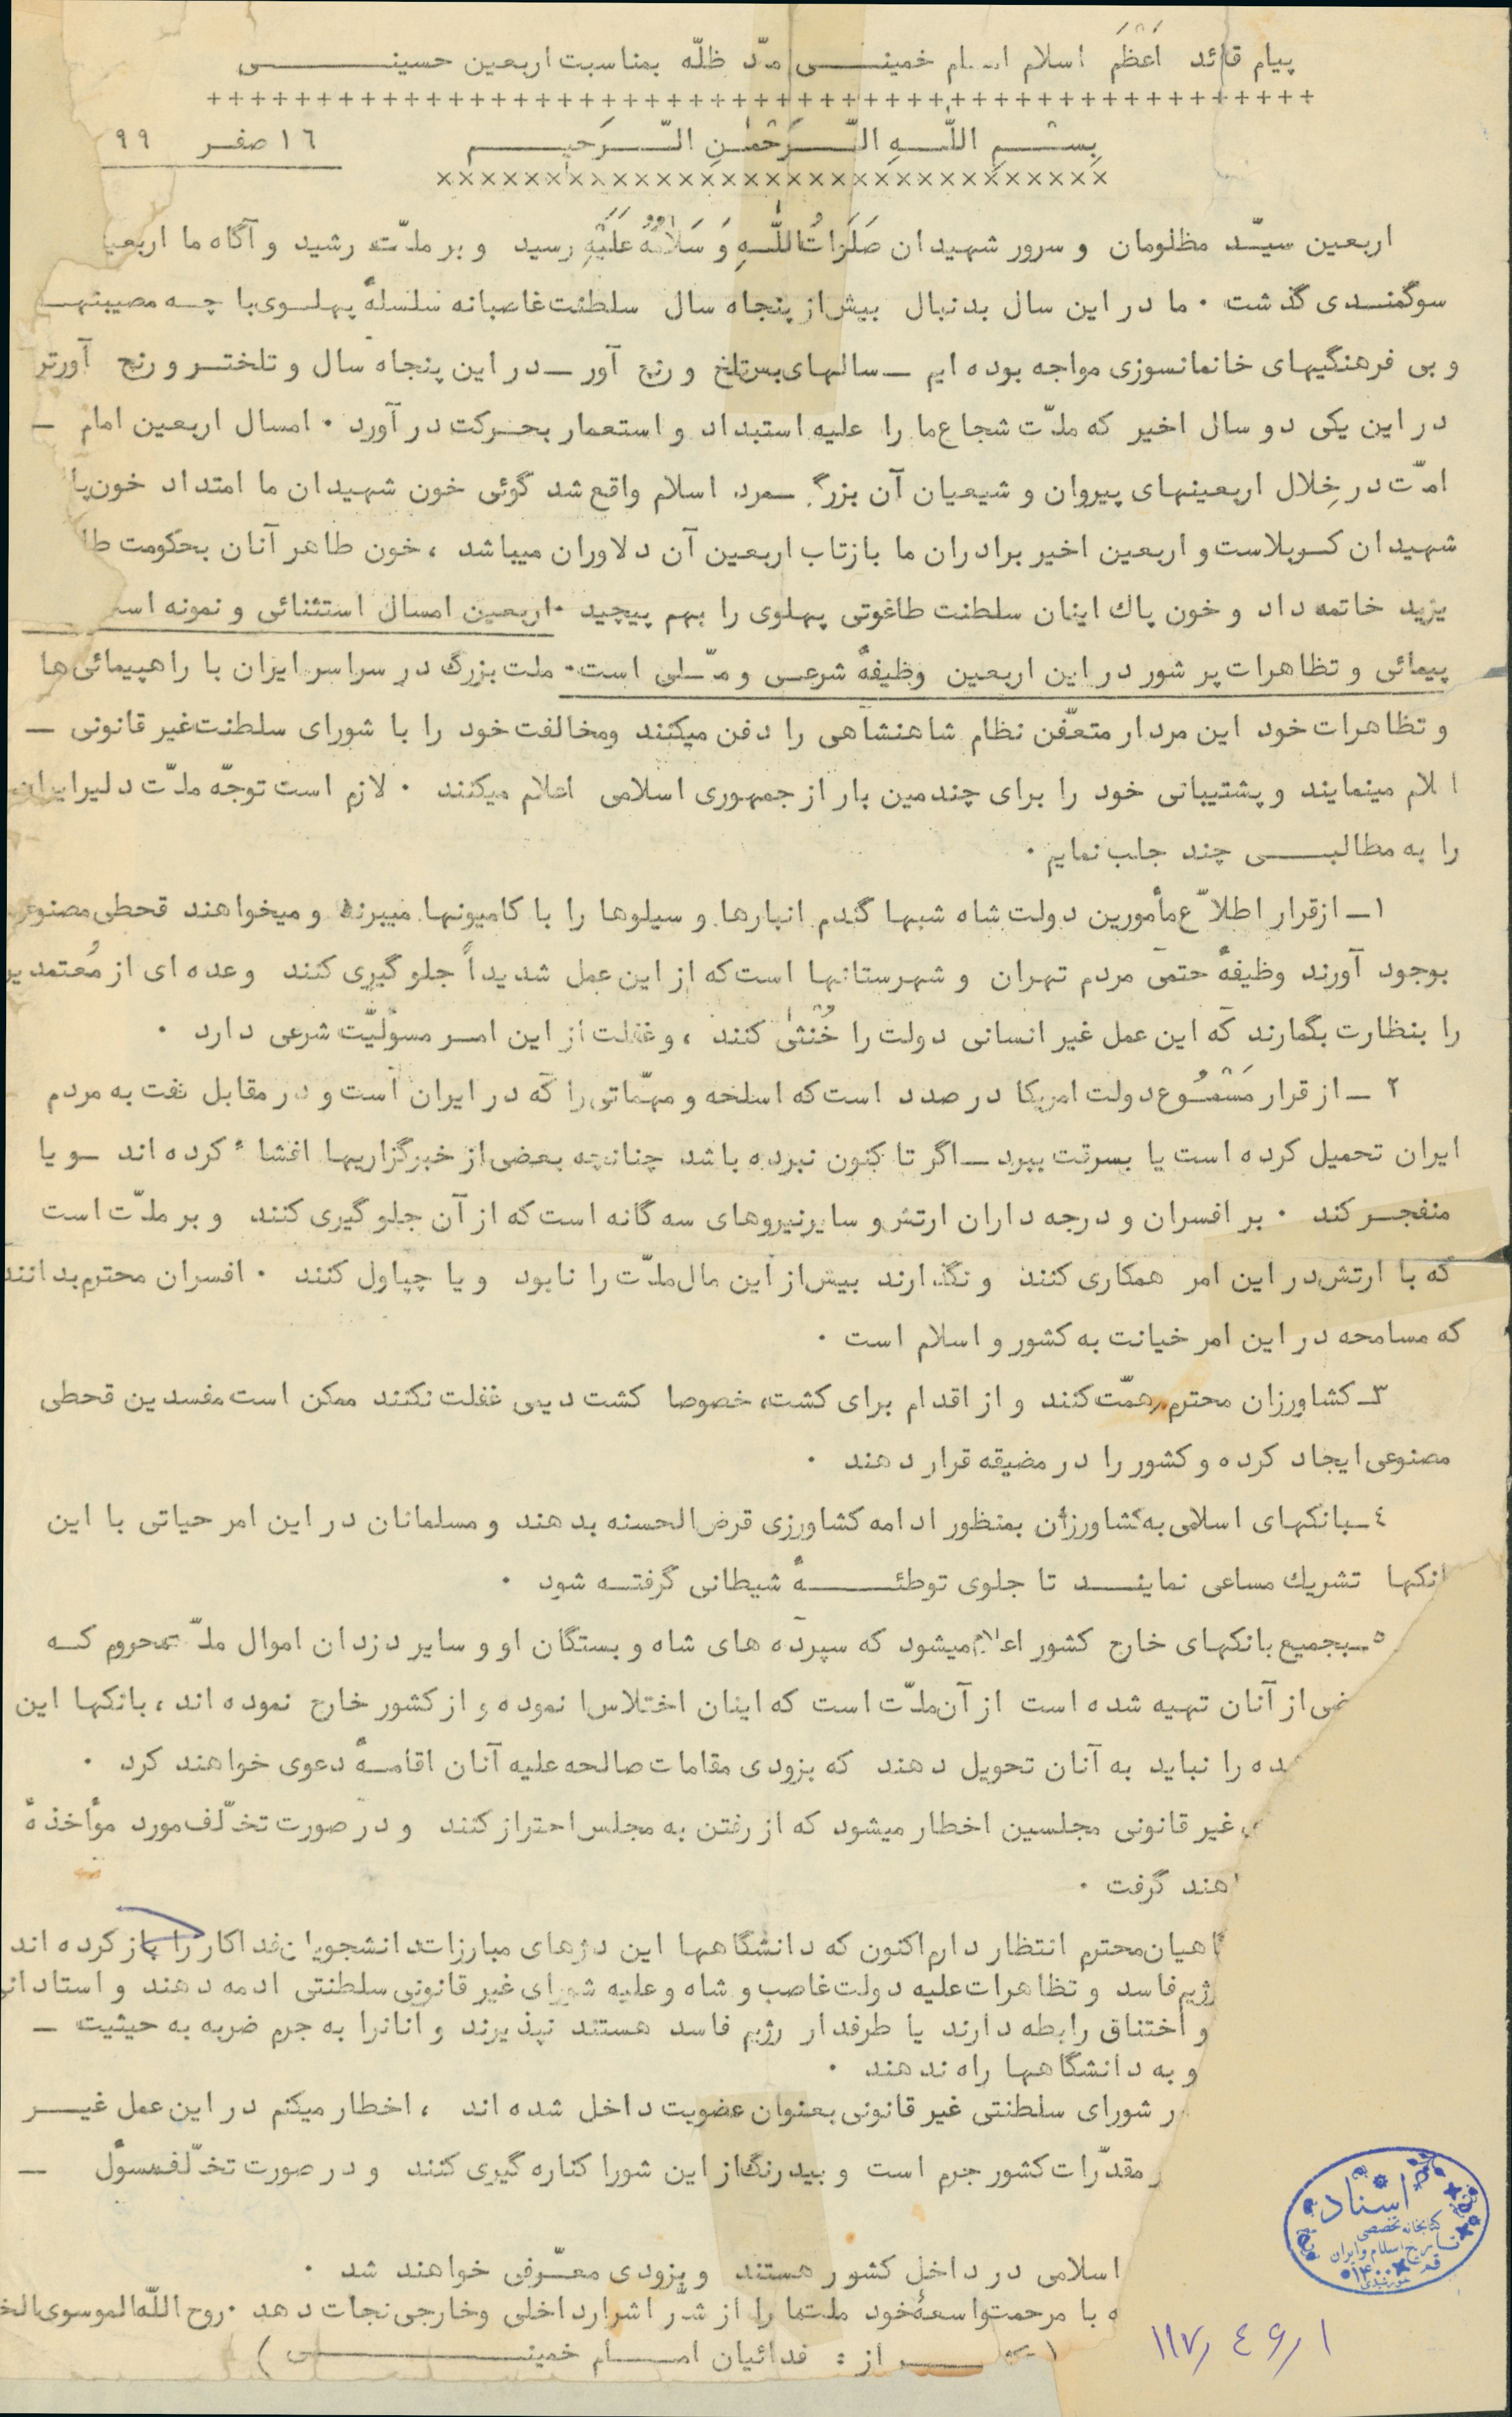 پیام قائد اَعْظَم اسلام امام خمینی مدّ ظلّه بمناسبت اربعین حسینی
++++++++++++++++++++++++++++++++++++++++++++++++++
بِسْمِ اللَّهِ الرَّحْمٰنِ الرَّحیم
١٦ صفر ٩٩
×××××××××××××××××××××××××××××××
اربعین سیّد مظلومان و سرور شهیدان صَلَواتُ اللّهِ وَ سَلامُهُ عَلَیْهِ رسید و بر ملّت رشید و آگاه ما
سوگمندی گذشت ۰ ما در این سال بدنبال بیش از پنجاه سال سلطنت غاصبانه سلسلهٔ پهلوی با چه
و بی فرهنگیهای خانمانسوزی مواجه بوده ایم ـ سالهای بس تلخ و رنج آور ـ در این پنجاه سال و تلختر و رنج آورتر
در این یکی دو سال اخیر که ملّت شجاع ما را علیه استبداد و استعمار بحرکت در آورد ۰ امسال اربعین امام ـ
امّت در خِلال اربعینهای پیروان و شیعیان آن بزرگ مرد اسلام واقع شد گوئی خون شهیدان ما امتداد خون
شهیدان کربلاست و اربعین اخیر برادران ما بازتاب اربعین آن دلاوران میباشد ، خون طاهر آنان بحکومت
یزید خاتمه داد و خون پاك اینان سلطنت طاغوتی پهلوی را بهم پیچید ۰ اربعین امسال استثنائی و نمونه
پیمائی و تظاهرات پر شور در این اربعین وظیفهٔ شرعی و ملّی است ۰ ملت بزرگ در سراسر ایران با راهپیمائی ها
و تظاهرات خود این مردار متعفّن نظام شاهنشاهی را دفن میکنند ومخالفت خود را با شورای سلطنت غیر قانونی ـ
اعلام مینمایند و پشتیبانی خود را برای چندمین بار از جمهوری اسلامی اعلام میکنند ۰ لازم است توجّه ملّت دلیر ایران
را به مطالبی چند جلب نمایم ۰
١ـ ازقرار اطلاّع مأمورین دولت شاه شبها گندم انبارها و سیلوها را با کامیونها میبرند و میخواهند قحطی مصنوعی
بوجود آورند وظیفهٔ حتمی مردم تهران و شهرستانها است که از این عمل شدیداً جلوگیری کنند و عده ای از
را بنظارت بگمارند که این عمل غیر انسانی دولت را خُنْثٰی کنند ، و غفلت از این امر مسؤلیّت شرعی دارد ۰
٢ ـ از قرار مَسْمُوع دولت امریکا در صدد است که اسلحه و مهمّاتی را که در ایران است و در مقابل نفت به مردم
ایران تحمیل کرده است یا بسرقت ببرد ـ اگر تا کنون نبرده باشد چنانچه بعضی از خبرگزاریها افشاء کرده اند ـ و یا
منفجر کند ۰ بر افسران و درجه داران ارتش و سایرنیروهای سه گانه است که از آن جلوگیری کنند و بر ملّت است
که با ارتش در این امر همکاری کنند و نگذارند بیش از این مال ملّت را نابود و یا چپاول کنند ۰ افسران محترم بدانند
که مسامحه در این امر خیانت به کشور و اسلام است ۰
٣ـ کشاورزان محترم همّت کنند و از اقدام برای کشت، خصوصا کشت دیمی غفلت نکنند ممکن است مفسدین قحطی
مصنوعی ایجاد کرده و کشور را در مضیقه قرار دهند ۰
٤ـ بانکهای اسلامی به کشاورزان بمنظور ادامه کشاورزی قرض الحسنه بدهند و مسلمانان در این امر حیاتی با این
انکها تشریك مساعی نمایند تا جلوی توطئهٔ شیطانی گرفته شود ۰
٥ـ بجمیع بانکهای خارج کشور اعلام میشود که سپرده های شاه و بستگان او و سایر دزدان اموال ملّت محروم که
از آنان تهیه شده است از آن ملّت است که اینان اختلاس نموده و از کشور خارج نموده اند ، بانکها این
ده را نباید به آنان تحویل دهند که بزودی مقامات صالحه علیه آنان اقامهٔ دعوی خواهند کرد ۰
غیر قانونی مجلسین اخطار میشود که از رفتن به مجلس احتراز کنند و در صورت تخلّف مورد مؤاخذهٔ
اهند گرفت ۰
اهیان محترم انتظار دارم اکنون که دانشگاهها این دژهای مبارزات دانشجویان فداکار را باز کرده اند
رژیم فاسد و تظاهرات علیه دولت غاصب و شاه و علیه شورای غیر قانونی سلطنتی ادمه دهند و
و اختناق رابطه دارند یا طرفدار رژیم فاسد هستند نپذیرند و انانرا به جرم ضربه به حیثیت ـ
و به دانشگاهها راه ندهند ۰
ر شورای سلطنتی غیر قانونی بعنوان عضویت داخل شده اند ، اخطار میکنم در این عمل غیر
ر مقدّرات کشور جرم است و بیدرنگ از این شورا کناره گیری کنند و در صورت تخلّف مسؤل ـ
اسلامی در داخل کشور هستند و بزودی معرّفی خواهند شد ۰
ه با مرحمت واسعهٔ خود ملت ما را از شر اشرار داخلی و خارجی نجات دهد ۰ روح اللّه الموسوی
از : فدائیان امام خمینی )
اسناد
کتابخانه تخصصی
تاریخ اسلام و ایران
قم
١١٧/ ٤٦/ ١